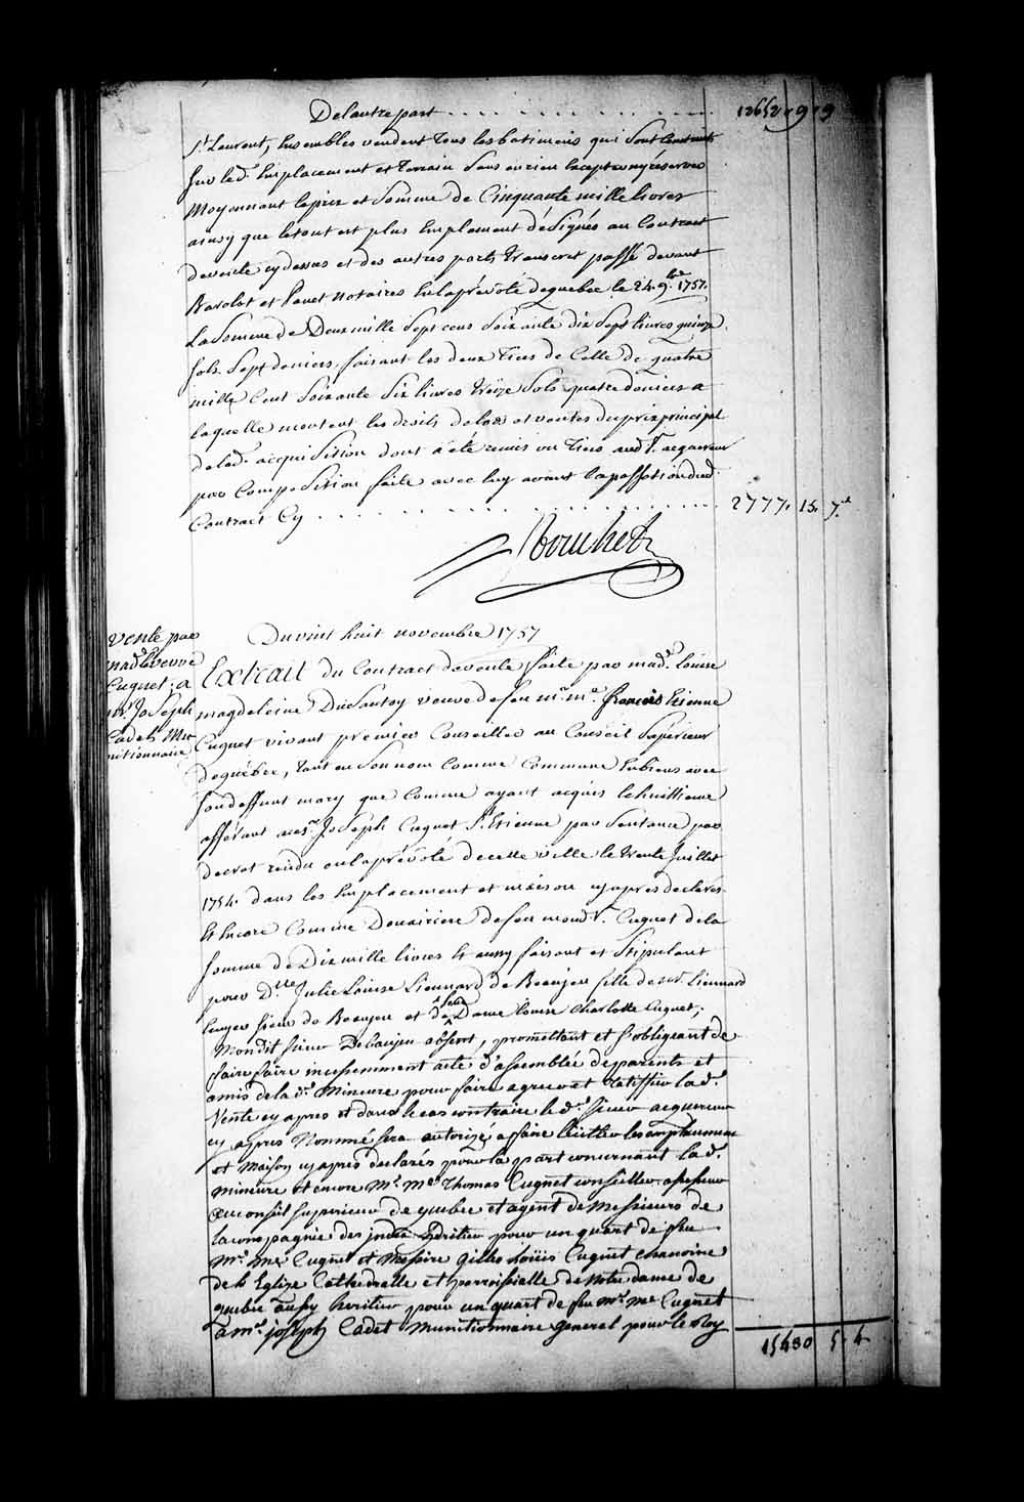 De l'autre part . . . . . . . . . . 12652 " 9 " 9
St Laurent, Ensembles vendent tous les batimens qui sont construits
sur led. Emplacement et terrain sans en rien Excepter ny réserver
Moyennant le prix et Somme de Cinquante mille livres
ainsy que le tout est plus Emplement désigné au Contract
de vente cy dessus et des autres parts transcrit passé devant
Barolet et Panet Notaires En la prévôté de quebec le 24. 9bre 1757.
La Somme de Deux mille Sept cens Soixante dix Sept livres quinze
sols Sept deniers, faisant les deux Tiers de Celle de quatre
mille Cent Soixante Six livres treize Sols quatre deniers a
laquelle montent les droits de lods et ventes du prix principal
de lad. acquisition dont a été remis un Tiers aud. Sr. acquereur
par Composition faite avec luy avant la passation dud.
Contract Cy . . . . . . . . . . 2777. 15. 7.d
Du vint huit novembre 1757
Vente par
mad. la veuve
Cuguet, a
mr. Joseph
Cadet Mu-
nitionnaire
Extrait du Contract de vente faite par mad.e Louise
magdeleine Dusautoy veuve de feu mr. me. françois Etienne
Cuguet vivant premier Conseiller au Conseil Superieur
de quebec, tant en Son nom Comme Commune En biens avec
son deffunt mary que Comme ayant acquis le huitieme
afférant au sr. Joseph Cuguet St. Etienne par Sentence par
decret rendu en la prévôté de cette ville le trente Juillet
1754. dans les Emplacement et maison cy après declarés
Et Encore Comme Douairiere de feu mond. Sr. Cuguet de la
somme de Dix mille livres Et aussy faisant et Stipulant
pour Dlle Julie Louise Lienard de Beaujeu fille de mr. Lienard
Ecuyer sieur de Beaujeu et de feue Dame Louise Charlotte Cuguet;
Mondit sieur De Beaujeu absent, promettant et s'obligeant de
faire faire incessemment acte d'assemblée de parents et
amis de la d. Mineure pour faire agreer et ratiffier la d.
Vente cy apres et dans le cas contraire le d. sieur acquereur
cy apres Nommé sera autorizé a faire liciter les emplacement
et Maison cy apres declarés pour la part concernant la d.
mineure et encore Mr. Me Thomas Cuguet conseiller assesseur
au conseil superieur de quebec et agent de Messieurs de
la compagnie des indes Heritier pour un quart de feu
Mr. Me Cuguet et Messire Gilles Loüis Cuguet chanoine
de l'Eglise Cathedralle et parroissielle de Notre dame de
quebec aussy heritier pour un quart de feu Mr. Me Cuguet
a mr. joseph Cadet Munitionnaire general pour le Roy
15430 5. 4.